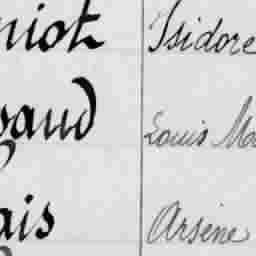 niot Isidore
gaud Louis Ma
ais Arsène